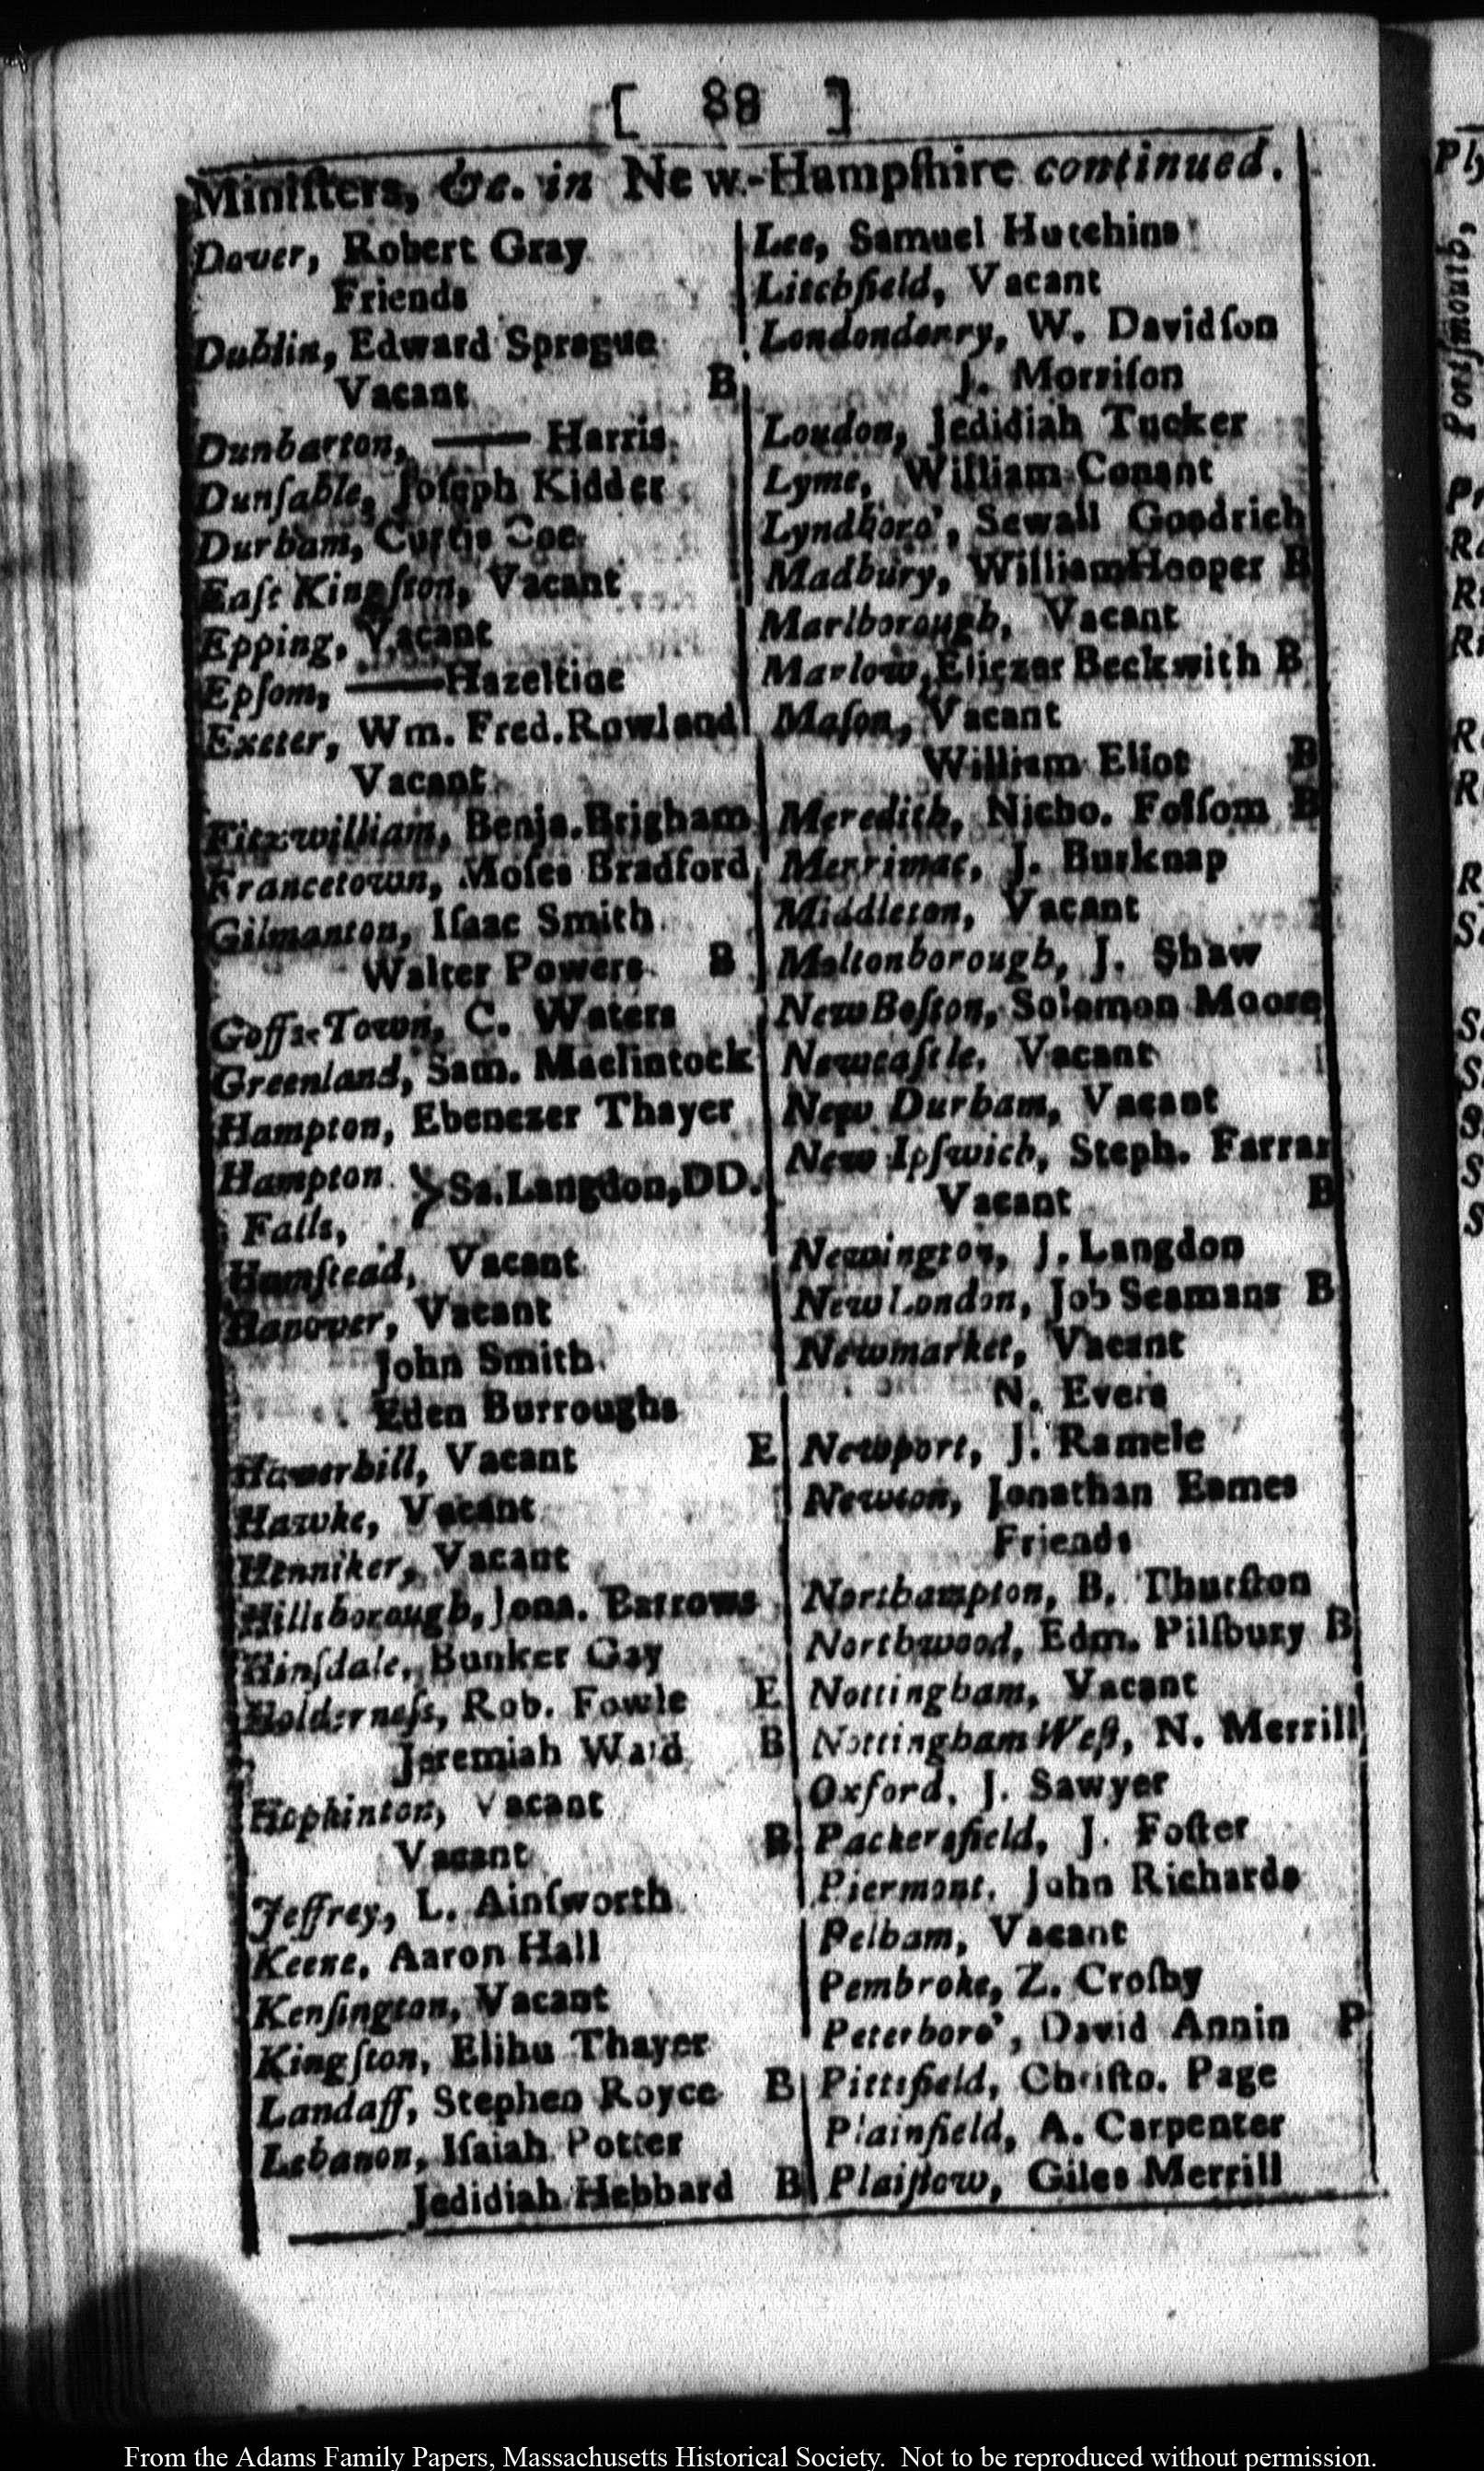 [ 88 ]
Miniſters, &c. in New-Hampſhire continued.
Dover, Robert Gray
Friends
Dublin, Edward Sprague
Vacant B
Dunbarton, —— Harris
Dunſable, Joſeph Kidder
Durham, Curtis Coe
Eaſt Kingſton, Vacant
Epping, Vacant
Epſom, ——Hazeltine
Exeter, Wm. Fred. Rowland
Vacant
Fitzwilliam, Benja. Brigham
Francetown, Moſes Bradford
Gilmanton, Iſaac Smith
Walter Powers B
Goffs-Town, C. Waters
Greenland, Sam. Maclintock
Hampton, Ebenezer Thayer
Hampton } Sa. Langdon, DD.
Falls,
Hamſtead, Vacant
Hanover, Vacant
John Smith
Eden Burroughs
Haverhill, Vacant E
Hawke, Vacant
Henniker, Vacant
Hillsborough, Jona. Barrows
Hinſdale, Bunker Gay
Holderneſs, Rob. Fowle E
Jeremiah Ward B
Hopkinton, Vacant
Vacant B
Jeffrey, L. Ainſworth
Keene, Aaron Hall
Kenſington, Vacant
Kingſton, Elihu Thayer
Landaff, Stephen Royce B
Lebanon, Iſaiah Potter
Jedidiah Hebbard B
Lee, Samuel Hutchins
Litchfield, Vacant
Londonderry, W. Davidſon
J. Morriſon
Loudon, Jedidiah Tucker
Lyme, William Conant
Lyndboro', Sewall Goodrich
Madbury, William Hooper B
Marlborough, Vacant
Marlow, Eliezer Beckwith B
Maſon, Vacant
William Eliot B
Meredith, Nicho. Folſom B
Merrimac, J. Burknap
Middleton, Vacant
Moltonborough, J. Shaw
New Boſton, Solomon Moore
Newcaſtle, Vacant
New Durham, Vacant
New Ipſwich, Steph. Farrar
Vacant B
Newington, J. Langdon
New London, Job Seamans B
Newmarket, Vacant
N. Evers
Newport, J. Ramele
Newton, Jonathan Eames
Friends
Northampton, B. Thurſton
Northwood, Edm. Pilſbury B
Nottingham, Vacant
Nottingham Weſt, N. Merrill
Oxford, J. Sawyer
Packersfield, J. Foſter
Piermont, John Richards
Pelham, Vacant
Pembroke, Z. Croſby
Peterboro', David Annin P
Pittsfield, Chriſto. Page
Plainfield, A. Carpenter
Plaiſtow, Giles Merrill
From the Adams Family Papers, Massachusetts Historical Society. Not to be reproduced without permission.